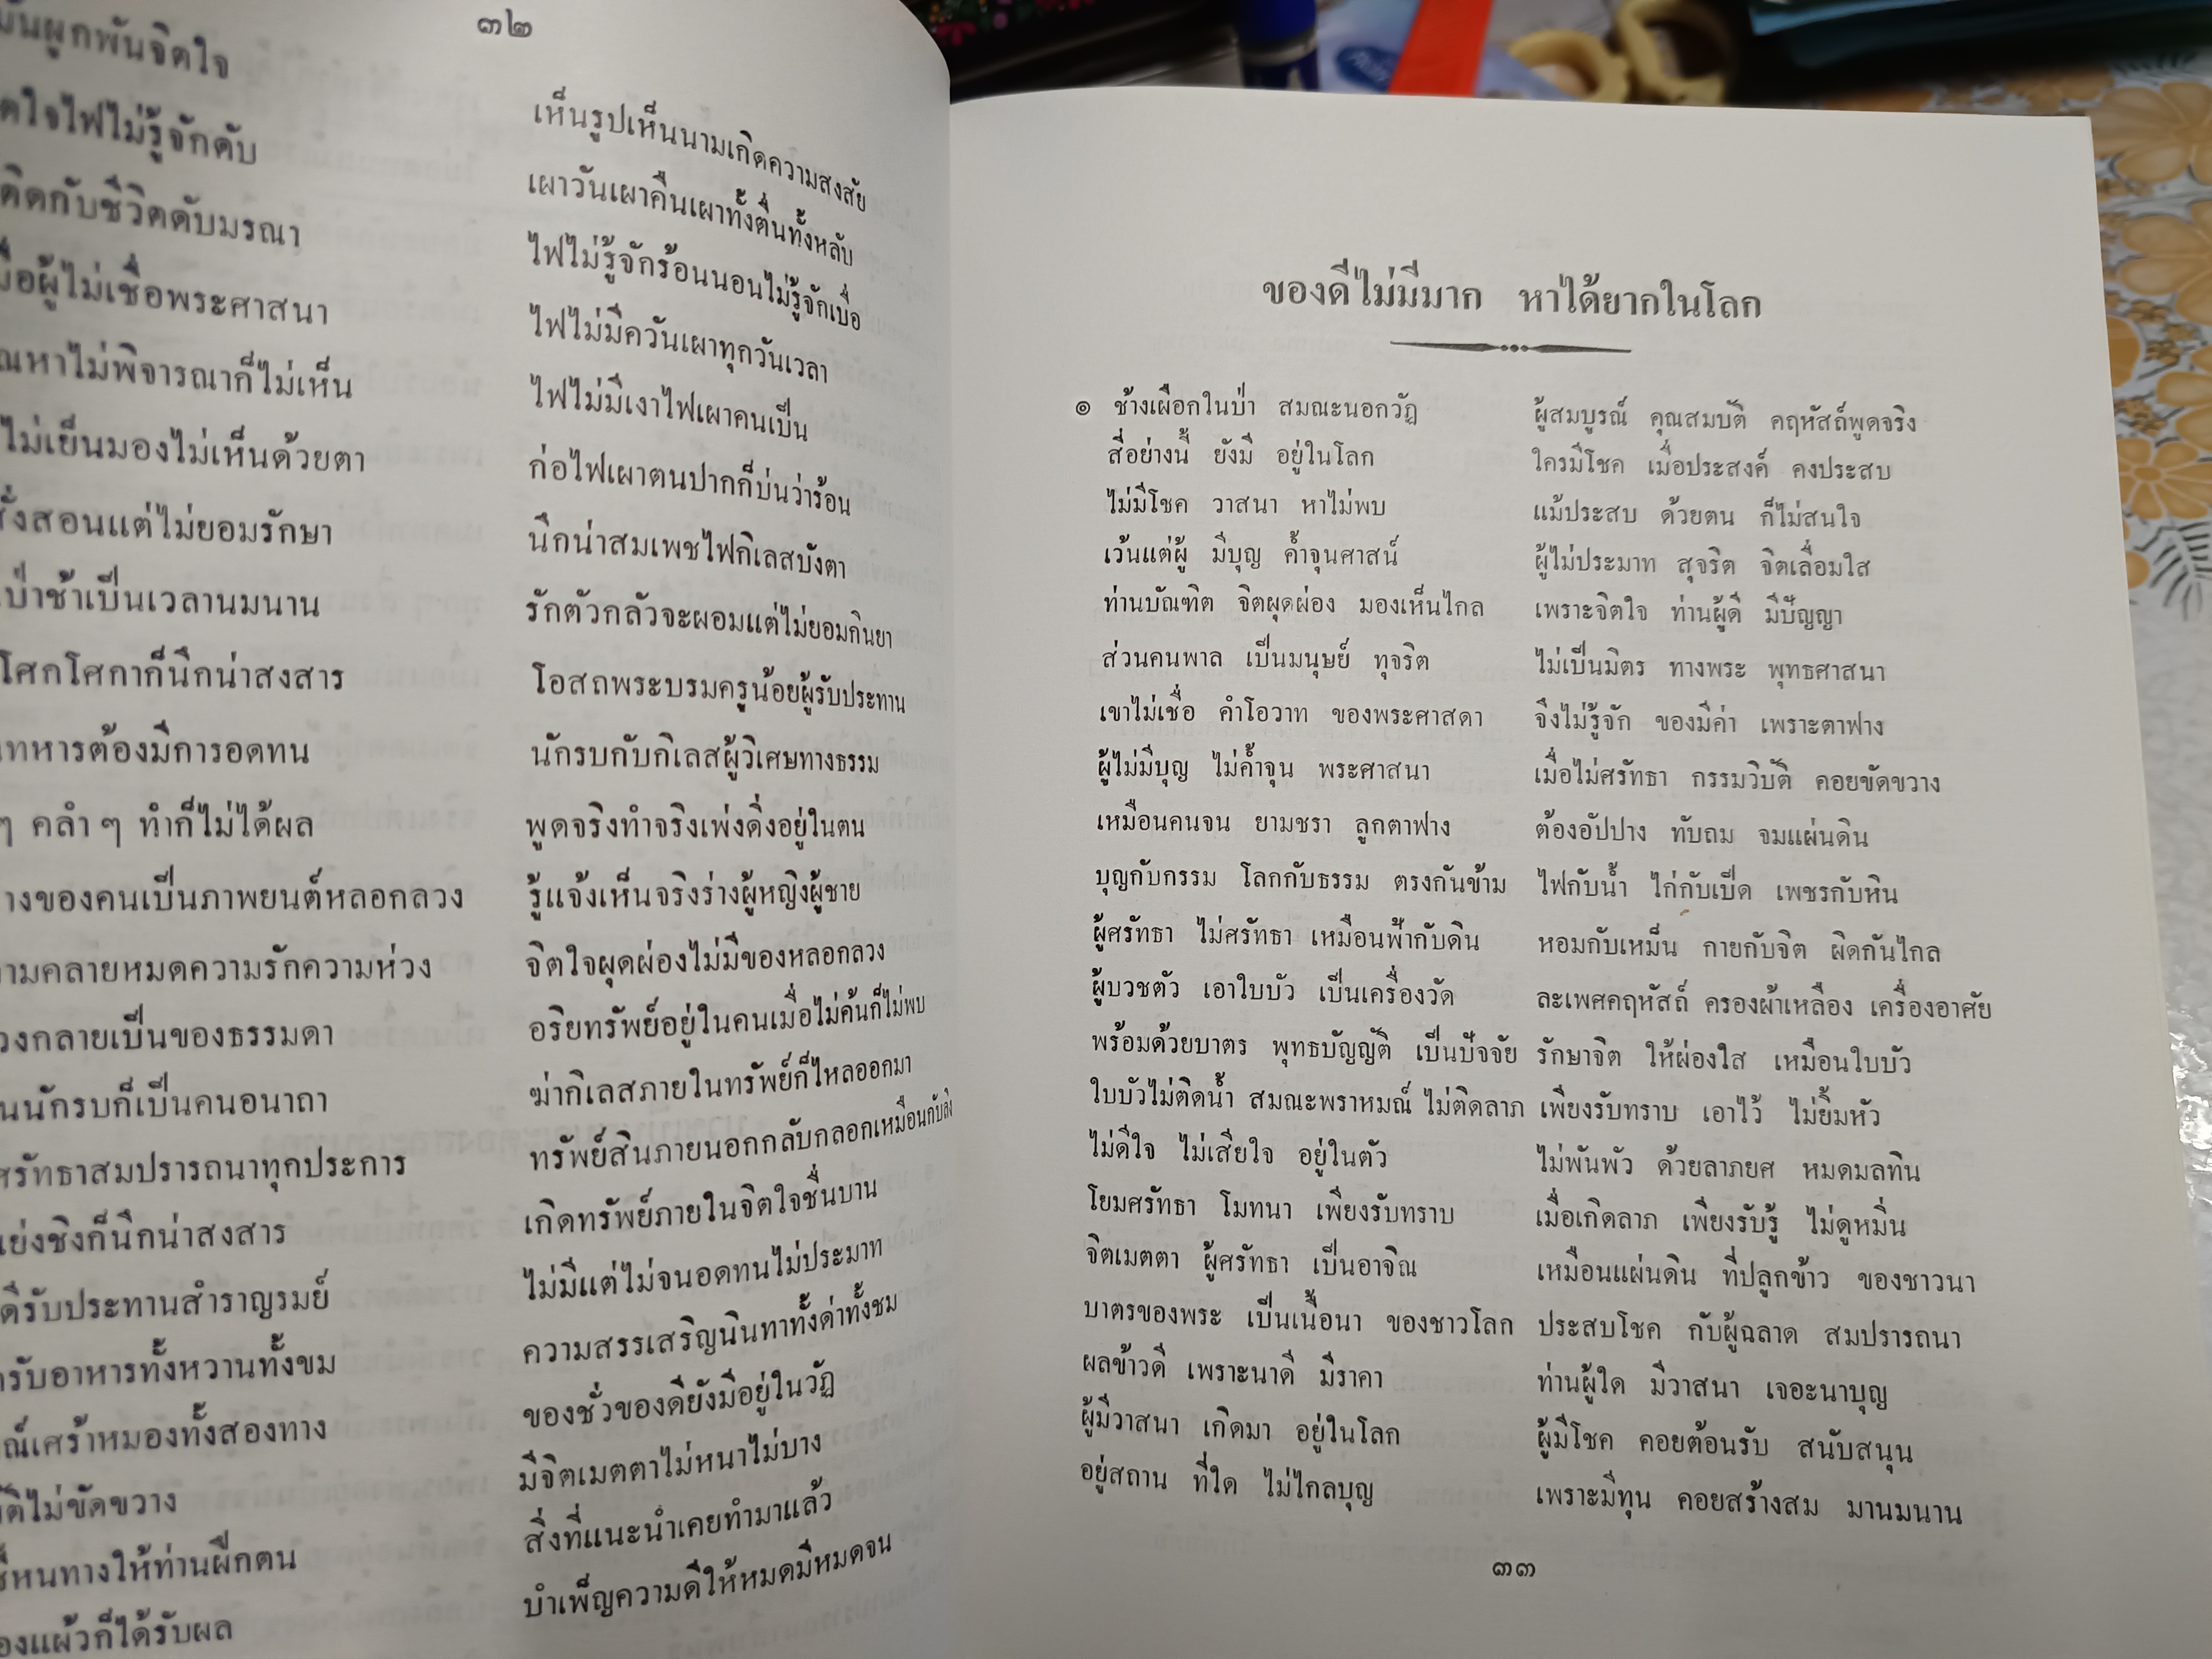 ๓๒
มั่นผูกพันจิตใจ
เห็นรูปเห็นนามเกิดความสงสัย
ไฟไม่รู้จักดับ
เผาวันเผาคืนเผาทั้งตื่นทั้งหลับ
ติดกับชีวิตดับมรณา
ไฟไม่รู้จักร้อนนอนไม่รู้จักเบื่อ
ผู้ไม่เชื่อพระศาสนา
ไฟไม่มีควันเผาทุกวันเวลา
ไม่พิจารณาก็ไม่เห็น
ไฟไม่มีเงาไฟเผาคนเป็น
ไม่เย็นมองไม่เห็นด้วยตา
ก่อไฟเผาตนปากก็บ่นว่าร้อน
สั่งสอนแต่ไม่ยอมรักษา
นึกน่าสมเพชไฟกิเลสบังตา
ป่าช้าเป็นเวลานมนาน
รักตัวกลัวจะผอมแต่ไม่ยอมกินยา
โศกโศกาก็นึกน่าสงสาร
โอสถพระบรมครูน้อยผู้รับประทาน
ทหารต้องมีการอดทน
นักรบกับกิเลสผู้วิเศษทางธรรม
ๆ คลำ ๆ ทำก็ไม่ได้ผล
พูดจริงทำจริงเพ่งดิ่งอยู่ในตน
ของคนเป็นภาพยนต์หลอกลวง
รู้แจ้งเห็นจริงร่างผู้หญิงผู้ชาย
คลายหมดความรักความห่วง
จิตใจผุดผ่องไม่มีของหลอกลวง
กลายเป็นของธรรมดา
อริยทรัพย์อยู่ในคนเมื่อไม่ค้นก็ไม่พบ
นักรบก็เป็นคนอนาถา
ฆ่ากิเลสภายในทรัพย์ก็ไหลออกมา
ศรัทธาสมปรารถนาทุกประการ
ทรัพย์สินภายนอกกลับกลอกเหมือนกับลิง
แย่งชิงก็นึกน่าสงสาร
เกิดทรัพย์ภายในจิตใจชื่นบาน
ดีรับประทานสำราญรมย์
ไม่มีแต่ไม่จนอดทนไม่ประมาท
รับอาหารทั้งหวานทั้งขม
ความสรรเสริญนินทาทั้งด่าทั้งชม
เศร้าหมองทั้งสองทาง
ของชั่วของดียังมีอยู่ในวัฏ
ไม่ขัดขวาง
มีจิตเมตตาไม่หนาไม่บาง
ชี้หนทางให้ท่านฝึกตน
สิ่งที่แนะนำเคยทำมาแล้ว
แผ้วก็ได้รับผล
บำเพ็ญความดีให้หมดมีหมดจน
ของดีไม่มีมาก หาได้ยากในโลก
๑ ช้างเผือกในป่า สมณะนอกวัฏ ผู้สมบูรณ์ คุณสมบัติ คฤหัสถ์พูดจริง
สี่อย่างนี้ ยังมี อยู่ในโลก ใครมีโชค เมื่อประสงค์ คงประสบ
ไม่มีโชค วาสนา หาไม่พบ แม้ประสบ ด้วยตน ก็ไม่สนใจ
เว้นแต่ผู้ มีบุญ ค้ำจุนศาสน์ ผู้ไม่ประมาท สุจริต จิตเลื่อมใส
ท่านบัณฑิต จิตผุดผ่อง มองเห็นไกล เพราะจิตใจ ท่านผู้ดี มีปัญญา
ส่วนคนพาล เป็นมนุษย์ ทุจริต ไม่เป็นมิตร ทางพระ พุทธศาสนา
เขาไม่เชื่อ คำโอวาท ของพระศาสดา จึงไม่รู้จัก ของมีค่า เพราะตาฟาง
ผู้ไม่มีบุญ ไม่ค้ำจุน พระศาสนา เมื่อไม่ศรัทธา กรรมวิบัติ คอยขัดขวาง
เหมือนคนจน ยามชรา ลูกตาฟาง ต้องอัปปาง ทับถม จมแผ่นดิน
บุญกับกรรม โลกกับธรรม ตรงกันข้าม ไฟกับน้ำ ไก่กับเป็ด เพชรกับหิน
ผู้ศรัทธา ไม่ศรัทธา เหมือนฟ้ากับดิน หอมกับเหม็น กายกับจิต ผิดกันไกล
ผู้บวชตัว เอาใบบัว เป็นเครื่องวัด ละเพศคฤหัสถ์ ครองผ้าเหลือง เครื่องอาศัย
พร้อมด้วยบาตร พุทธบัญญัติ เป็นปัจจัย รักษาจิต ให้ผ่องใส เหมือนใบบัว
ใบบัวไม่ติดน้ำ สมณะพราหมณ์ ไม่ติดลาภ เพียงรับทราบ เอาไว้ ไม่ยิ้มหัว
ไม่ดีใจ ไม่เสียใจ อยู่ในตัว ไม่พันพัว ด้วยลาภยศ หมดมลทิน
โยมศรัทธา โมทนา เพียงรับทราบ เมื่อเกิดลาภ เพียงรับรู้ ไม่ดูหมิ่น
จิตเมตตา ผู้ศรัทธา เป็นอาจิณ เหมือนแผ่นดิน ที่ปลูกข้าว ของชาวนา
บาตรของพระ เป็นเนื้อนา ของชาวโลก ประสบโชค กับผู้ฉลาด สมปรารถนา
ผลข้าวดี เพราะนาดี มีราคา ท่านผู้ใด มีวาสนา เจอะนาบุญ
ผู้มีวาสนา เกิดมา อยู่ในโลก ผู้มีโชค คอยต้อนรับ สนับสนุน
อยู่สถาน ที่ใด ไม่ไกลบุญ เพราะมีทุน คอยสร้างสม มานมนาน
๓๓